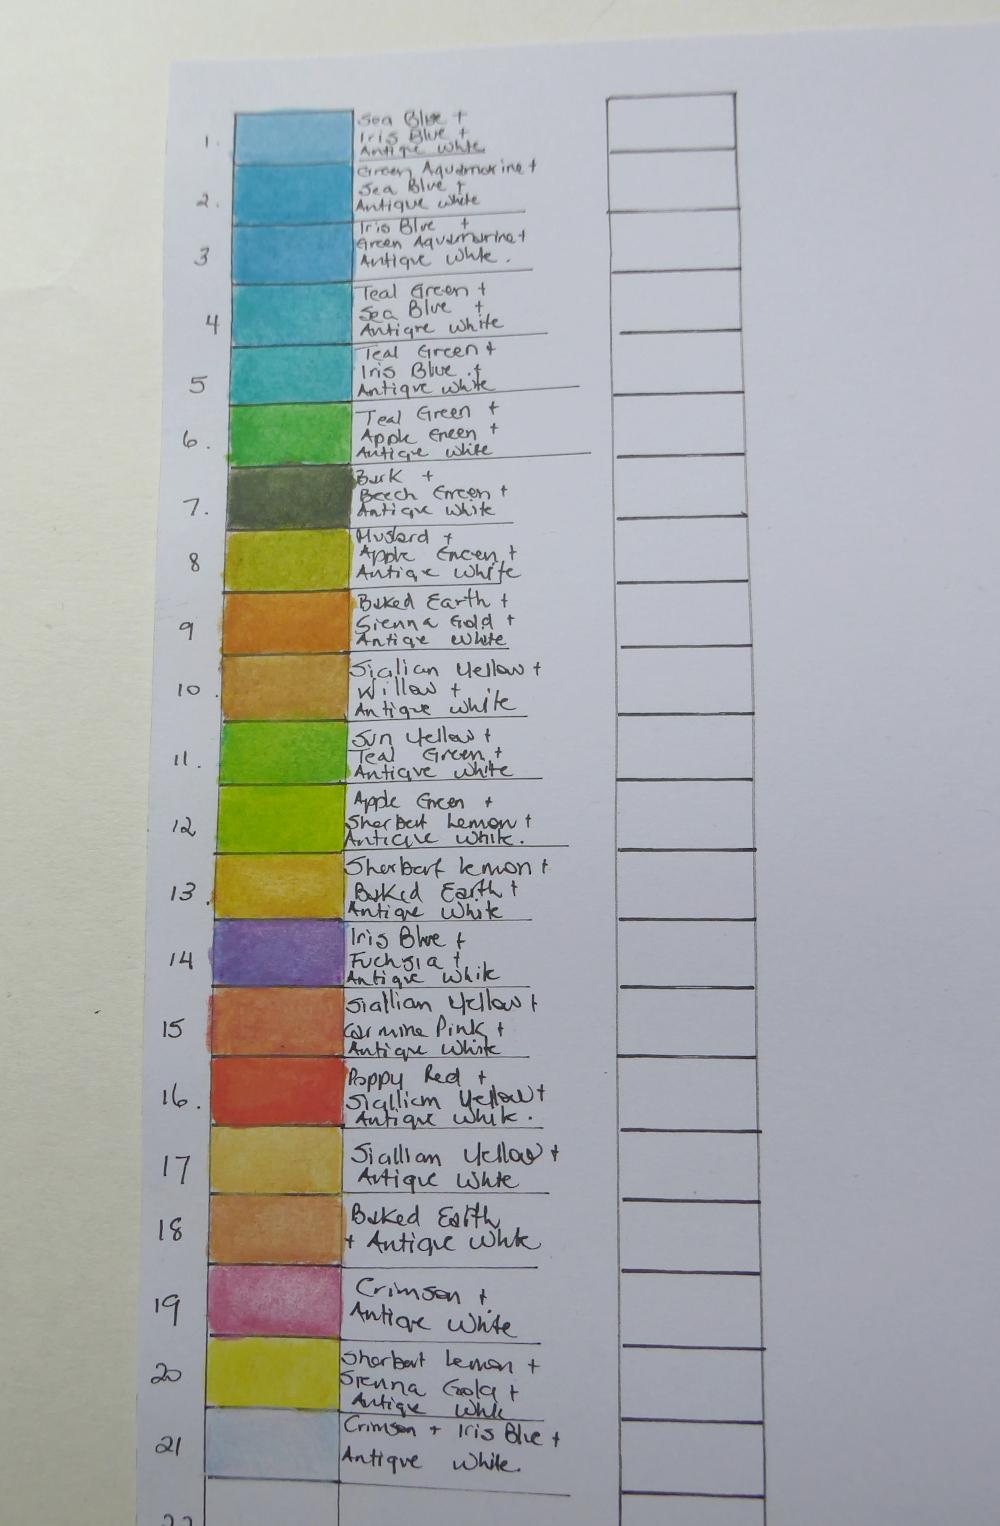 1. Sea Blue +
Iris Blue +
Antique White
2. Green Aquamarine +
Sea Blue +
Antique White
3 Iris Blue +
Green Aquamarine +
Antique White.
4 Teal Green +
Sea Blue +
Antique White
5 Teal Green +
Iris Blue +
Antique White
6. Teal Green +
Apple Green +
Antique White
7. Bark +
Beech Green +
Antique White
8 Mustard +
Apple Green +
Antique White
9 Baked Earth +
Sienna Gold +
Antique White
10. Sicilian Yellow +
Willow +
Antique White
11. Sun Yellow +
Teal Green +
Antique White
12 Apple Green +
Sherbert Lemon +
Antique White.
13. Sherbert Lemon +
Baked Earth +
Antique White
14 Iris Blue +
Fuchsia +
Antique White
15 Siallian Yellow +
Carmine Pink +
Antique White
16. Poppy Red +
Siallian Yellow +
Antique White.
17 Siallian Yellow +
Antique White
18 Baked Earth
+ Antique White
19 Crimson +
Antique White
20 Sherbert Lemon +
Sienna Gold +
Antique White
21 Crimson + Iris Blue +
Antique White.
22